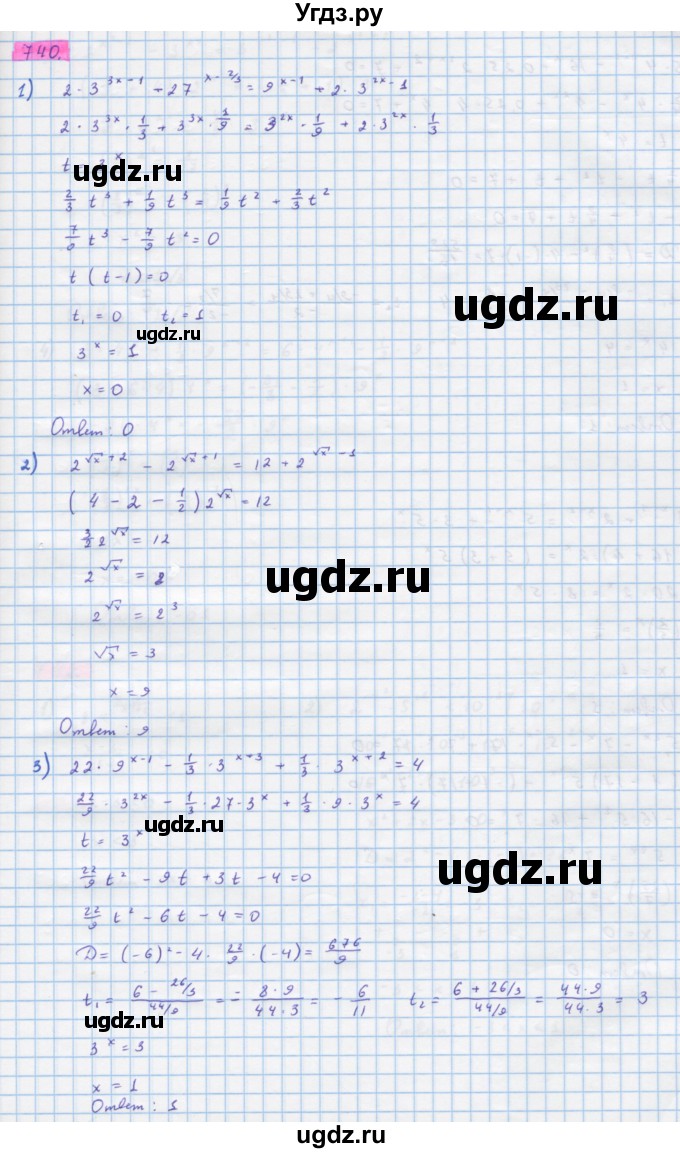 Угдз.ру
740.
1) 2·3^(3x−1) + 27^(x−2/3) = 9^(x−1) + 2·3^(2x−1)
2·3^(3x)·1/3 + 3^(3x)·1/9 = 3^(2x)·1/9 + 2·3^(2x)·1/3
t = 3^x
ugdz.ru
2/3 t³ + 1/9 t³ = 1/9 t² + 2/3 t²
7/9 t³ − 7/9 t² = 0
t (t−1) = 0
ugdz.ru
t₁ = 0 t₂ = 1
ugdz.ru
3^x = 1
x = 0
Ответ: 0
2) 2^(√x+2) − 2^(√x+1) = 12 + 2^(√x−1)
(4 − 2 − 1/2) 2^√x = 12
3/2 2^√x = 12
2^√x = 8
ugdz.ru
2^√x = 2³
√x = 3
x = 9
Ответ: 9
3) 22·9^(x−1) − 1/3·3^(x+3) + 1/3·3^(x+2) = 4
22/9·3^(2x) − 1/3·27·3^x + 1/3·9·3^x = 4
ugdz.ru
t = 3^x
22/9 t² − 9t + 3t − 4 = 0
ugdz.ru
22/9 t² − 6t − 4 = 0
D = (−6)² − 4·22/9·(−4) = 676/9
t₁ = (6 − 26/3)/(44/9) = − (8·9)/(44·3) = − 6/11 t₂ = (6 + 26/3)/(44/9) = (44·9)/(44·3) = 3
ugdz.ru
3^x = 3
x = 1
Ответ: 1
ugdz.ru